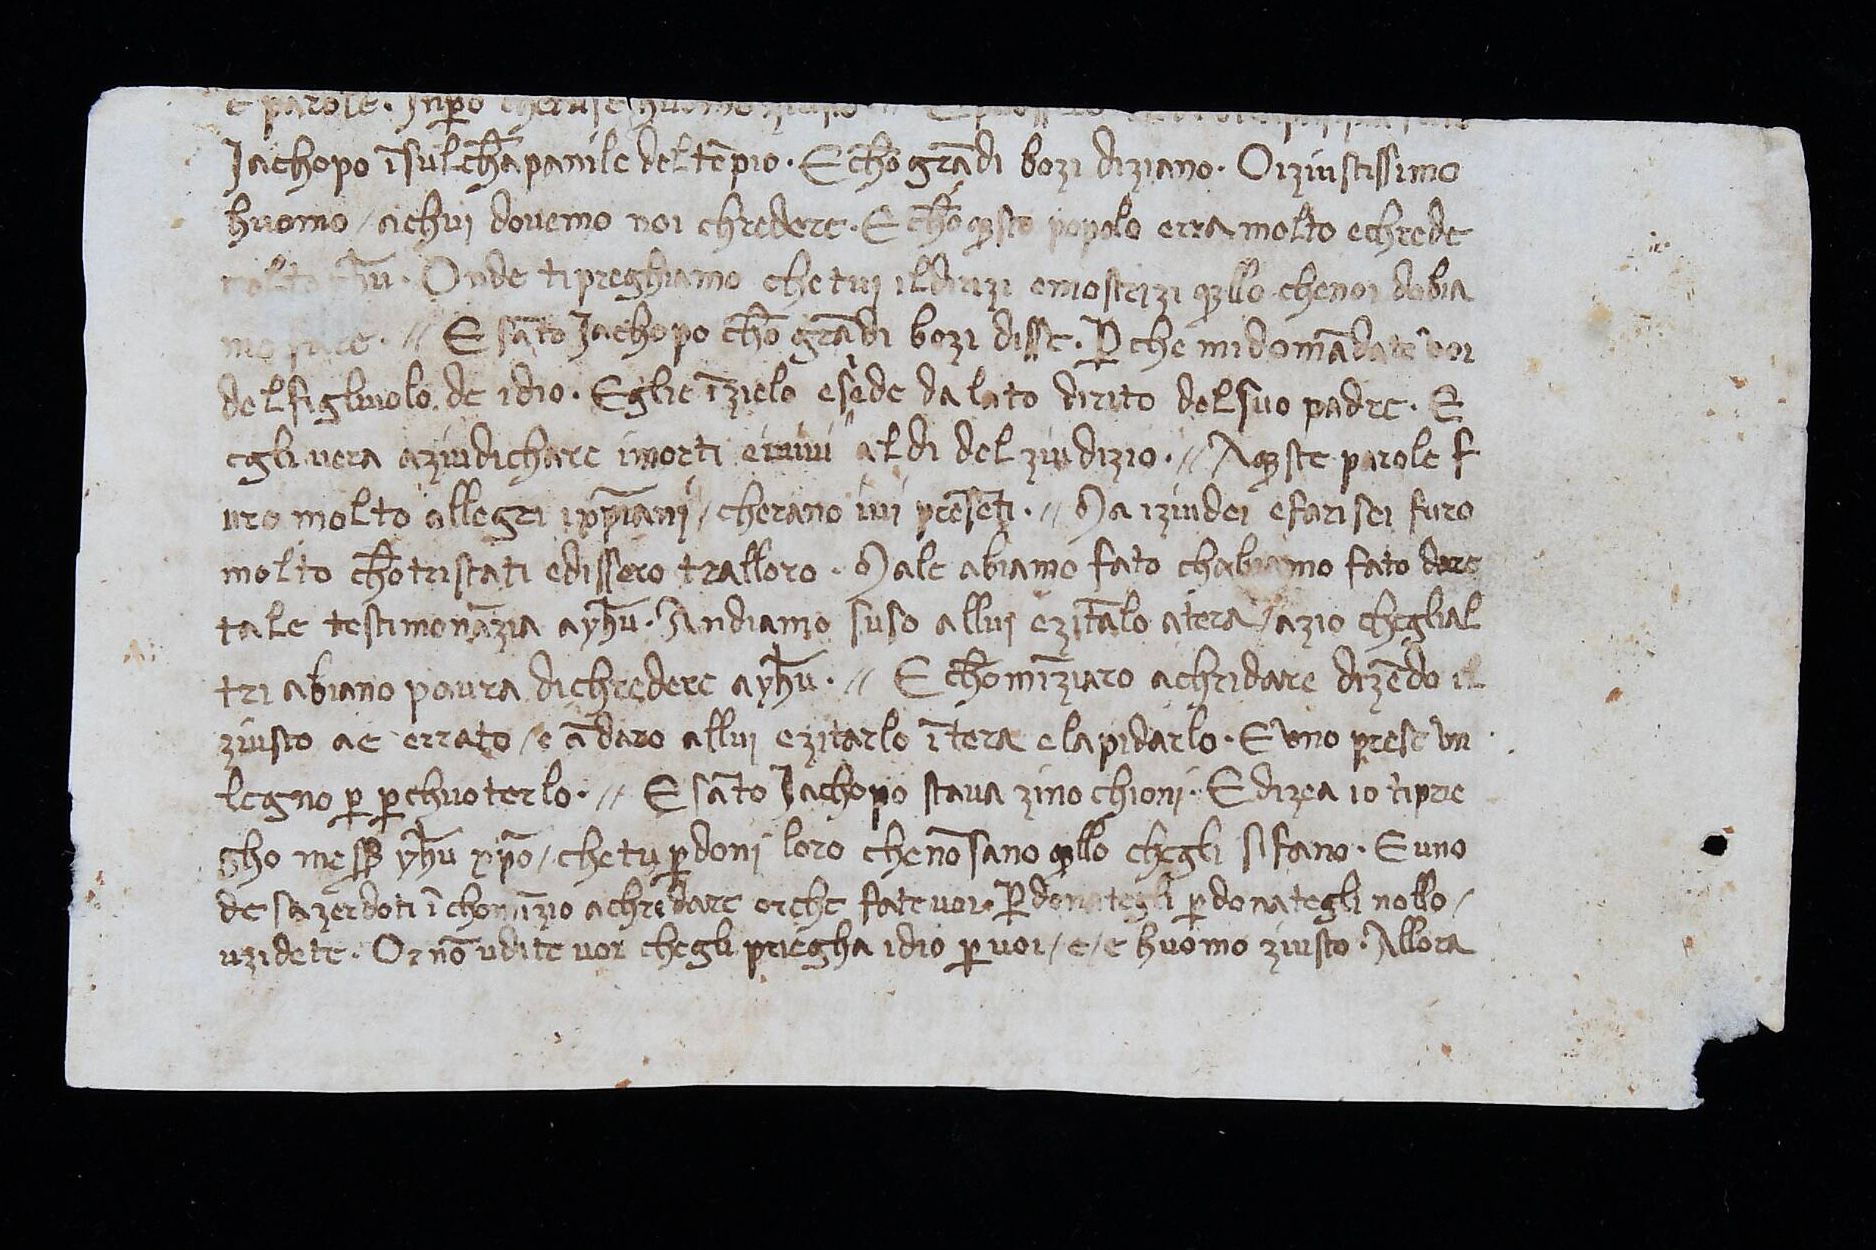 e parole. Inꝑo che
Jachopo ī sul chāpanile del tēpio. E chō grādi bozi diziano. O iziustissimo
huomo / achui dovemo noi chredere. E chō qsto popolo erra molto echrede
Onde ti preghiamo che tui ildirizi emostrizi qllo chenoi dobia
mo fare. // E sāto Jachopo chō grādi bozi disse. ꝑche midomādate voi
del figliuolo de idio. Eglie īzielo esēde da lato dirito del suo padre. E
egli vera aziudichare imorti eivivi al di del ziudizio. // Aqste parole f
uro molto allegri ixp̄iani / cherano ivi presēti. // Ma iziudei efarisei furo
molto chōtristati edissero tralloro. Male abiamo fato chabiamo fato dare
tale testimonāzia ayhū. Andiamo suso allui ezitālo atera / azio cheglial
tri abiano paura dichredere ayhū. // E chomīziaro achridare dizēdo il
ziusto ae errato / e ādaro allui ezitarlo ītera elapidarlo. E uno prese un
legno ꝑ ꝑchuoterlo. // E sāto Jachopo stava zinochioni. E dizea io tipre
gho mess yhū xp̄o / chetu ꝑdoni loro chenō sano qllo chegli sifano. E uno
de sazerdoti ī chomīzio achridare orche fate voi. ꝑdonategli ꝑdonategli nollo /
uzidete. Or nō udite voi chegli priegha idio ꝑ voi / e / e huomo ziusto. Allora